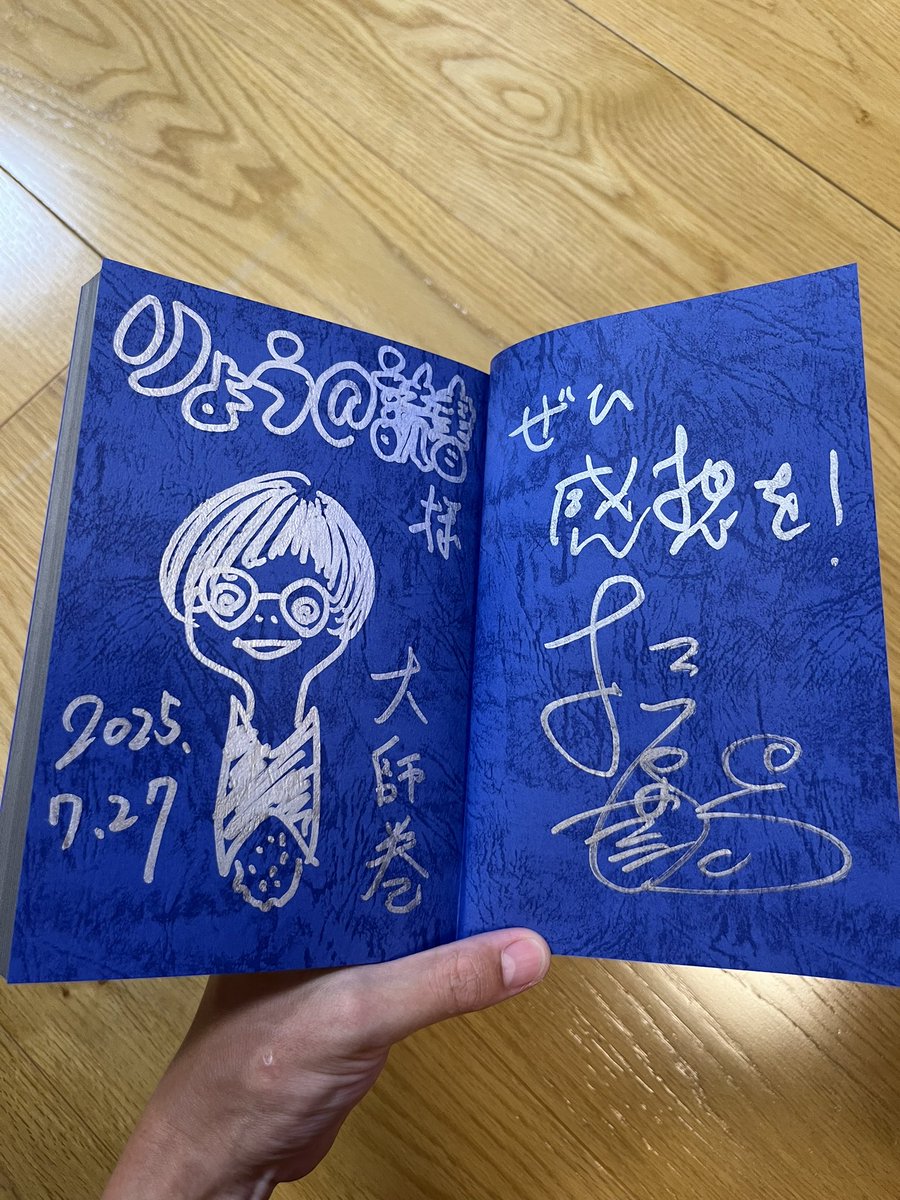 りょう@読書
様
大師巻
2025.
7.27
ぜひ
感想を!